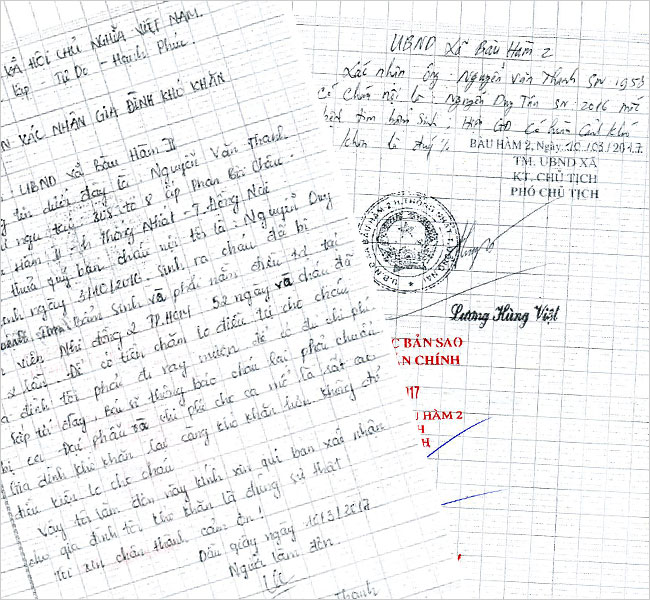 XÃ HỘI CHỦ NGHĨA VIỆT NAM
lập - Tự Do - Hạnh Phúc.
XÁC NHẬN GIA ĐÌNH KHÓ KHĂN
UBND xã Bàu Hàm II
tên dưới đây là Nguyễn Văn Thanh
ngụ tại 305 tổ 8 ấp Phan Bội Châu.
Hàm II H Thống Nhất - T. Đồng Nai
thưa quý ban cháu nội tôi là: Nguyễn Duy
ngày 3/10/2016 - sinh ra cháu đã bị
Bẩm Sinh và phải nằm điều trị tại
viện Nhi đồng 2 TP.HCM 52 ngày và cháu đã
2 lần. Để có tiền chăm lo điều trị cho cháu
đình tôi phải đi vay mượn để đủ chi phí
sắp tới đây, Bác sĩ thông báo cháu lại phải chuẩn
bị ca Đại phẫu và chi phí cho ca mổ là rất cao
Gia đình khó khăn lại càng khó khăn hơn không đủ
điều kiện lo cho cháu
Vậy tôi làm đơn này kính xin quí ban xác nhận
cho gia đình tôi khó khăn là đúng sự thật
Tôi xin chân thành cảm ơn!
Dầu giây ngày 10/3/2017
Người làm đơn.
Thanh
UBND Xã Bàu Hàm 2
Xác nhận ông - Nguyễn Văn Thanh SN 1953
có cháu nội là: Nguyễn Duy Tân SN 2016 mắc
bệnh tim bẩm sinh, Hiện GĐ có hoàn cảnh khó
khăn là
BÀU HÀM 2, Ngày 10/03/2017.
TM. UBND XÃ
KT. CHỦ TỊCH
PHÓ CHỦ TỊCH
Lương Hùng Việt
BẢN SAO
CHÍNH
HÀM 2